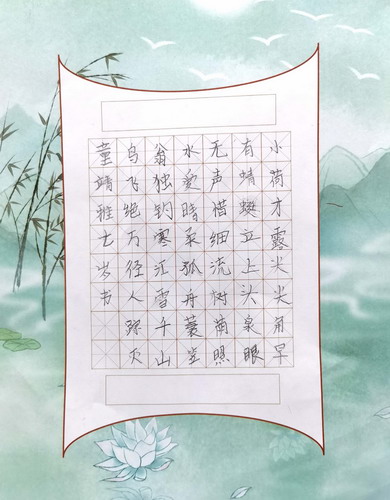 小荷才露尖尖角早
有蜻蜓立上头泉眼
无声惜细流树荫照
水爱晴柔孤舟蓑笠
翁独钓寒江雪千山
鸟飞绝万径人踪灭
董靖雅七岁书